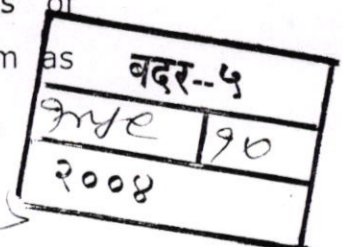 s of
m as
बदर--५
१०
२००४